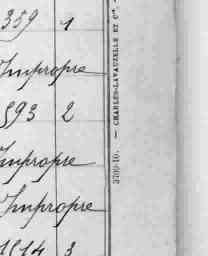 359 1
Impropre
593 2
Impropre
Impropre
1514 3
3700-10. — CHARLES-LAVAUZELLE ET Cie.